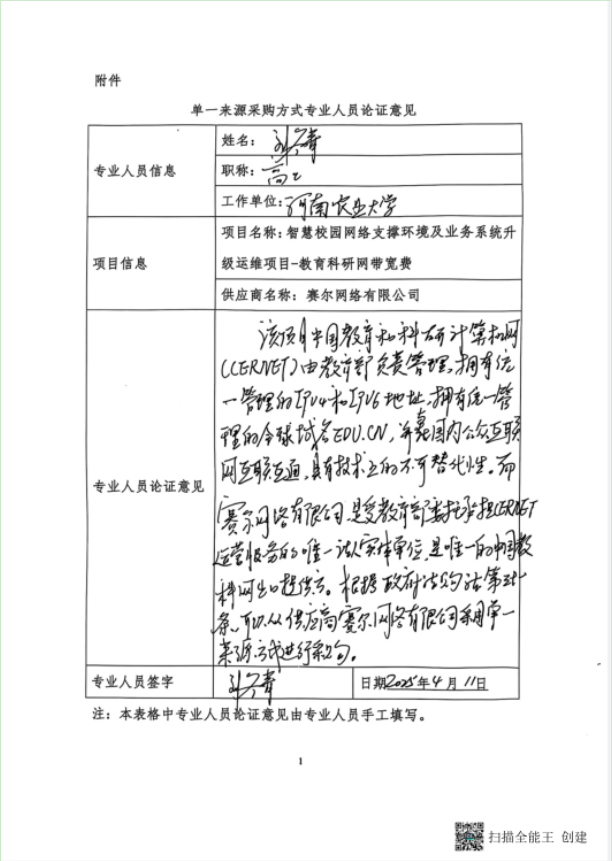 附件
单一来源采购方式专业人员论证意见
专业人员信息
姓名：
职称：高工
工作单位：河南农业大学
项目信息
项目名称：智慧校园网络支撑环境及业务系统升
级运维项目-教育科研网带宽费
供应商名称：赛尔网络有限公司
专业人员论证意见
该项目中国教育和科研计算机网
(CERNET)由教育部负责管理，拥有统
一管理的IPV4和IPV6地址，拥有统一管
理的全球域名EDU.CN，并 国内公众互联
网互联互通，具有技术上的不可替代性。而
赛尔网络有限公司，是受教育部委托承担CERNET
运营服务的唯一 实体单位，是唯一的中国教
科网出口提供方。根据政府采购法第三十一
条，可以从供应商赛尔网络有限公司采用单一
来源方式进行采购。
专业人员签字
日期2025年4月11日
注：本表格中专业人员论证意见由专业人员手工填写。
1
扫描全能王 创建